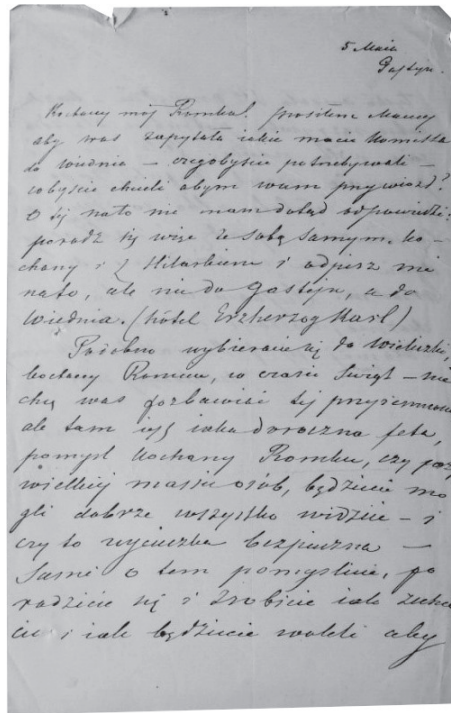 5 Maia
Gastyn.
Kochany mój Romku! prosiłem Mamy
aby was zapytała iakie macie komissa
do Wiednia – czegobyście potrzebywali –
cobyście chcieli abym wam przywiózł?
O tej nato nie mam dotąd odpowiedzi;
poradź się więc ze sobą samym, ko-
chany i z Hilarkiem i odpisz mi
nato, ale nie do Gastyn, a do
Wiednia. (hôtel Erzherzog Karl)
Podobno wybieracie się do Wieliczki,
kochany Romciu, w czasie Świąt – nie
chcę was pozbawiać tej przyiemności
ale tam iest iakaś doroczna feta,
pomyśl kochany Romku, czy przy
wielkiej massie osób, będziecie mo
gli dobrze wszystko widzieć – i
czy to wycieczka bezpieczna –
Sami o tem pomyślicie, po
radzicie się i zrobicie iak zechce
cie i iak będziecie woleli aby